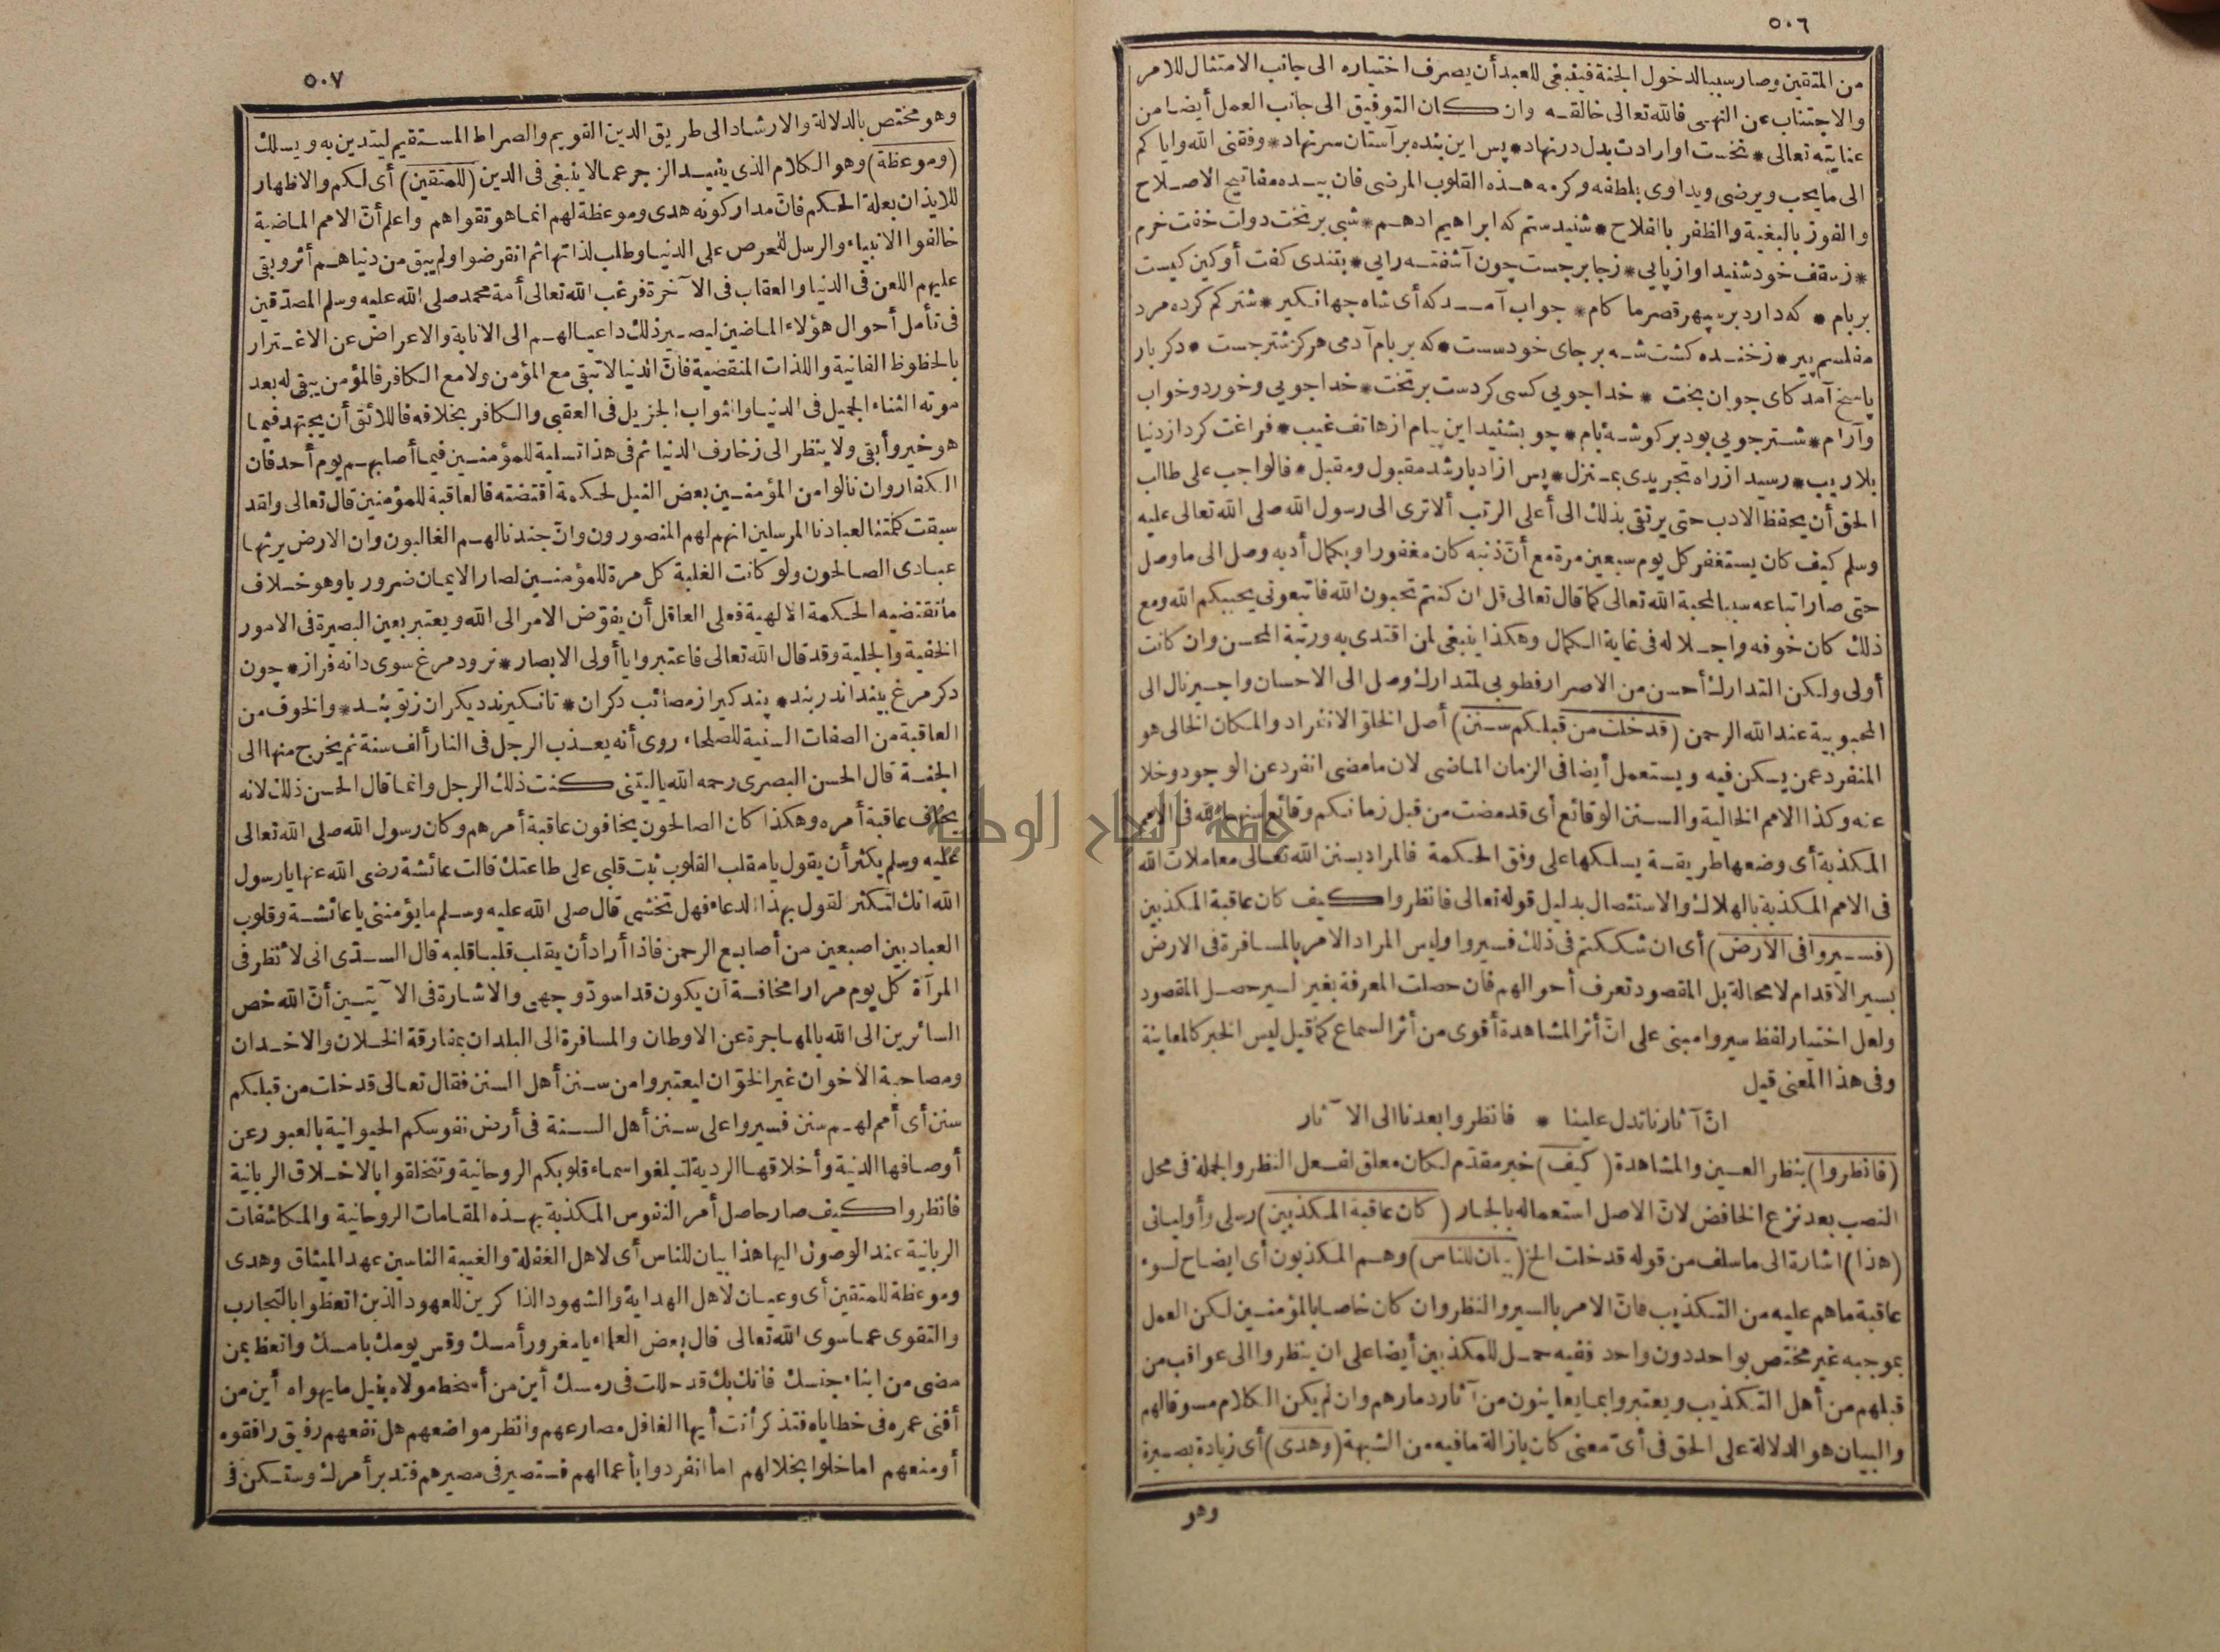 ٥٠٦
من المتقين وصار سببا لدخول الجنة فينبغى للعبد أن يصرف اختياره الى جانب الامتثال للامر
والاجتناب عن النهى فالله تعالى خالقه وان كان التوفيق الى جانب العمل أيضا من
عنايته تعالى * نخست او ارادت بدل درنهاد * پس اين بنده بر آستان سر نهاد * وفقنى الله واياكم
الى ما يحب ويرضى ويداوى بلطفه وكرمه هذه القلوب المرضى فان بيده مفاتيح الاصلاح
والفوز بالبغية والظفر بالفلاح * شنيدستم كه ابراهيم ادهم * شبى بر تخت دولت خفت خرم
* ز سقف خود شنيد اواز پايى * ز جا برجست چون آشفته رايى * بتندى كفت أو كين كيست
بر بام * كه دارد بر سپهر قصر ما كام * جواب آمد كه أى شاه جهانكير * شتر كم كرده مرد
مفلسم پير * ز خنده كشت شه بر جاى خود سست * كه بر بام آدمى هركز شتر جست * دكر بار
پاسخ آمد كاى جوان بخت * خدا جويى كسى كردست بر تخت * خدا جويى وخورد وخواب
وآرام * شتر جويى بود بر كوشهٔ بام * چو بشنيد اين پيام از هاتف غيب * فراغت كرد از دنيا
بلا ريب * رسيد از راه تجريدى بمنزل * پس از ادبار شد مقبول ومقبل * فالواجب على طالب
الحق أن يحفظ الادب حتى يرتقى بذلك الى أعلى الرتب ألا ترى الى رسول الله صلى الله تعالى عليه
وسلم كيف كان يستغفر كل يوم سبعين مرة مع أن ذنبه كان مغفورا وبكمال أدبه وصل الى ما وصل
حتى صار اتباعه سببا لمحبة الله تعالى كما قال تعالى قل ان كنتم تحبون الله فاتبعونى يحببكم الله ومع
ذلك كان خوفه واجلاله فى غاية الكمال وهكذا ينبغى لمن اقتدى به ورتبة المحسن وان كانت
أولى ولكن التدارك أحسن من الاصرار فطوبى لمتدارك وصل الى الاحسان واجير نال الى
المحبوبية عند الله الرحمن (قد خلت من قبلكم سنن) أصل الخلو الانفراد والمكان الخالى هو
المنفرد عمن يسكن فيه ويستعمل أيضا فى الزمان الماضى لان ما مضى انفرد عن الوجود وخلا
عنه وكذا الامم الخالية والسنن الوقائع أى قد مضت من قبل زمانكم وقائع سنها الله فى الامم
المكذبة أى وضعها طريقة يسلكها على وفق الحكمة فالمراد بسنن الله تعالى معاملات الله
فى الامم المكذبة بالهلاك والاستئصال بدليل قوله تعالى فانظروا كيف كان عاقبة المكذبين
(فسيروا فى الارض) أى ان شككتم فى ذلك فسيروا وليس المراد الامر بالمسافرة فى الارض
بسير الاقدام لا محالة بل المقصود تعرف أحوالهم فان حصلت المعرفة بغير السير حصل المقصود
ولعل اختيار لفظ سيروا مبنى على ان أثر المشاهدة أقوى من أثر السماع كما قيل ليس الخبر كالمعاينة
وفى هذا المعنى قيل
انّ آثارنا تدل علينا * فانظروا بعدنا الى الآثار
(فانظروا) بنظر العين والمشاهدة (كيف) خبر مقدّم لكان معلق لفعل النظر والجملة فى محل
النصب بعد نزع الخافض لان الاصل استعماله بالجار (كان عاقبة المكذبين) رسلى وأوليائى
(هذا) اشارة الى ما سلف من قوله قد خلت الخ (بيان للناس) وهم المكذبون أى ايضاح لسوء
عاقبة ما هم عليه من التكذيب فانّ الامر بالسير والنظر وان كان خاصا بالمؤمنين لكن العمل
بموجبه غير مختص بواحد دون واحد ففيه حمل للمكذبين أيضا على ان ينظروا الى عواقب من
قبلهم من أهل التكذيب ويعتبروا بما يعاينون من آثار دمارهم وان لم يكن الكلام مسوقا لهم
والبيان هو الدلالة على الحق فى أىّ معنى كان بازالة ما فيه من الشبهة (وهدى) أى زيادة بصيرة
وهو
٥٠٧
وهو مختص بالدلالة والارشاد الى طريق الدين القويم والصراط المستقيم ليتدين به ويسلك
(وموعظة) وهو الكلام الذى يفيد الزجر عما لا ينبغى فى الدين (للمتقين) أى لكم والاظهار
للايذان بعلة الحكم فانّ مدار كونه هدى وموعظة لهم انما هو تقواهم واعلم أنّ الامم الماضية
خالفوا الانبياء والرسل للحرص على الدنيا وطلب لذاتها ثم انقرضوا ولم يبق من دنياهم أثر وبقى
عليهم اللعن فى الدنيا والعقاب فى الآخرة فرغب الله تعالى أمة محمد صلى الله عليه وسلم المصدّقين
فى تأمل أحوال هؤلاء الماضين ليصير ذلك داعيا لهم الى الانابة والاعراض عن الاغترار
بالحظوظ الفانية واللذات المنقضية فانّ الدنيا لا تبقى مع المؤمن ولا مع الكافر فالمؤمن يبقى له بعد
موته الثناء الجميل فى الدنيا والثواب الجزيل فى العقبى والكافر بخلافه فاللائق أن يجتهد فيما
هو خير وأبقى ولا ينظر الى زخارف الدنيا ثم فى هذا تسلية للمؤمنين فيما أصابهم يوم أحد فان
الكفار وان نالوا من المؤمنين بعض النيل لحكمة اقتضته فالعاقبة للمؤمنين قال تعالى ولقد
سبقت كلمتنا لعبادنا المرسلين انهم لهم المنصورون وانّ جندنا لهم الغالبون وان الارض يرثها
عبادى الصالحون ولو كانت الغلبة كل مرة للمؤمنين لصار الايمان ضروريا وهو خلاف
ما تقتضيه الحكمة الالهية فعلى العاقل أن يفوّض الامر الى الله ويعتبر بعين البصيرة فى الامور
الخفية والجلية وقد قال الله تعالى فاعتبروا يا أولى الابصار * نرود مرغ سوى دانه فراز * چون
دكر مرغ بيند اندر بند * پند كير از مصائب دكران * تا نكيرند ديكران ز تو پند * والخوف من
العاقبة من الصفات السنية للصلحاء روى أنه يعذب الرجل فى النار ألف سنة ثم يخرج منها الى
الجنة قال الحسن البصرى رحمه الله ياليتنى كنت ذلك الرجل وانما قال الحسن ذلك لانه
يخاف عاقبة أمره وهكذا كان الصالحون يخافون عاقبة أمرهم وكان رسول الله صلى الله تعالى
عليه وسلم يكثر أن يقول يا مقلب القلوب ثبت قلبى على طاعتك قالت عائشة رضى الله عنها يا رسول
الله انك لتكثر لقول بهذا الدعاء فهل تخشى قال صلى الله عليه وسلم ما يؤمننى يا عائشة وقلوب
العباد بين اصبعين من أصابع الرحمن فاذا أراد أن يقلب قلبا قلبه قال السدّى انى لانظر فى
المرآة كل يوم مرارا مخافة أن يكون قد اسودّ وجهى والاشارة فى الآيتين أنّ الله خص
السائرين الى الله بالمهاجرة عن الاوطان والمسافرة الى البلدان بمفارقة الخلان والاخدان
ومصاحبة الاخوان غير الخوّان ليعتبروا من سنن أهل السنن فقال تعالى قد خلت من قبلكم
سنن أى أمم لهم سنن فسيروا على سنن أهل السنة فى أرض نفوسكم الحيوانية بالعبور عن
أوصافها الدنية وأخلاقها الردية لتبلغوا سماء قلوبكم الروحانية وتتخلقوا بالاخلاق الربانية
فانظروا كيف صار حاصل أمر النفوس المكذبة بهذه المقامات الروحانية والمكاشفات
الربانية عند الوصول اليها هذا بيان للناس أى لاهل الغفلة والغيبة الناسين عهد الميثاق وهدى
وموعظة للمتقين أى وعيان لاهل الهداية والشهود الذاكرين للعهود الذين اتعظوا بالتجارب
والتقوى عما سوى الله تعالى قال بعض العلماء يا مغرور أمسك وقس يومك بامسك واتعظ بمن
مضى من ابناء جنسك فانك بك قد حللت فى رمسك أين من أسخط مولاه بنيل ما يهواه أين من
أفنى عمره فى خطاياه فتذكر أنت أيها الغافل مصارعهم وانظر مواضعهم هل نفعهم رفيق رافقوه
أو منعهم اما خلوا بخلالهم اما انفردوا بأعمالهم فستصير فى مصيرهم فتدبر أمرك وستسكن فى